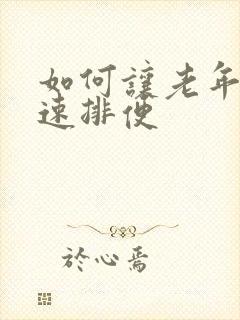 如何讓老年
速排便
於心焉